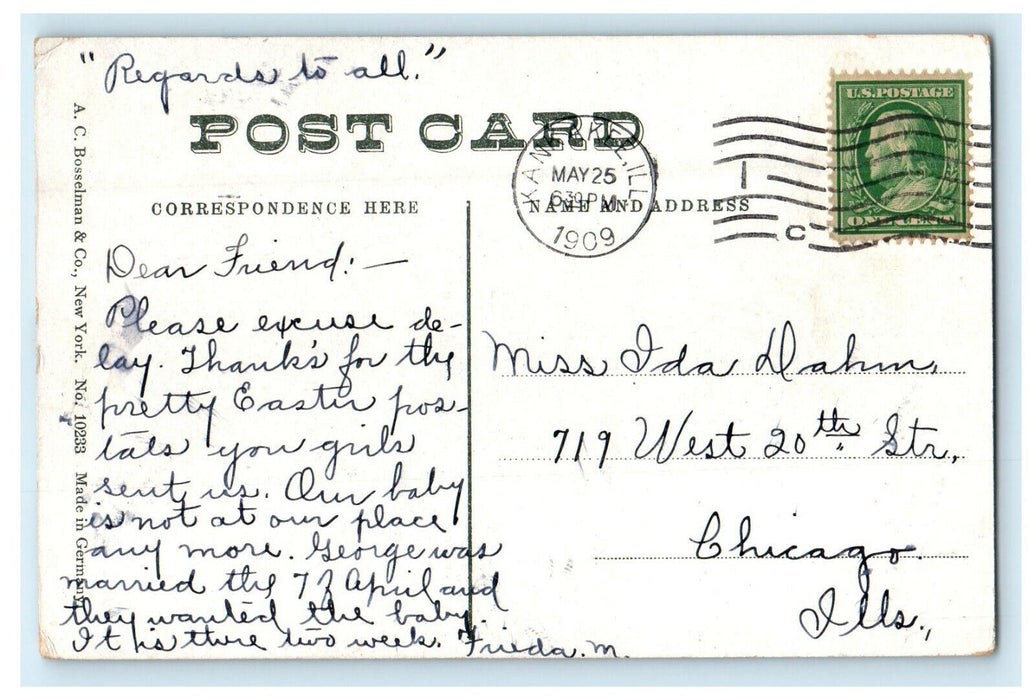 "Regards to all."
POST CARD
CORRESPONDENCE HERE
NAME AND ADDRESS
A. C. Bosselman & Co., New York. No. 10233 Made in Germany
KANKAKEE, ILL.
MAY 25
630 PM
1909
C
U.S. POSTAGE
ONE CENT
Dear Friend:—
Please excuse de-
lay. Thank's for the
pretty Easter pos-
tals you girls
sent us. Our baby
is not at our place
any more. George was
married the 7 April and
they wanted the baby.
It is there two weeks. Frieda. M.
Miss Ida Dahm,
719 West 20th Str.,
Chicago.
Ills.,